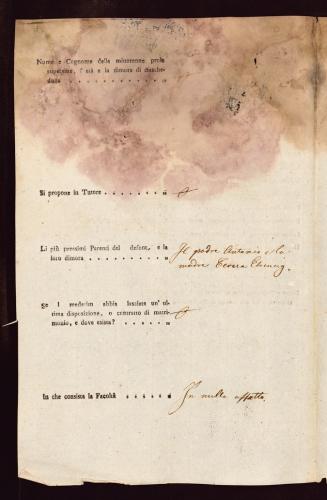 Nome e Cognome della minorenne prole
superstite, l'età e la dimora di ciasche-
duno
Si propone in Tutore . . . . . . . „
Li più prossimi Parenti del defont., e la
loro dimora . . . . . . . . . . „ Il padre Antonio e la
madre Teresa
Se i medesimi abbia lasciato un' ul-
tima disposizione, o contratto di matri-
monio, e dove esista? . . . . . . „
In che consista la Facoltà . . . . . „ In nulla affatto.